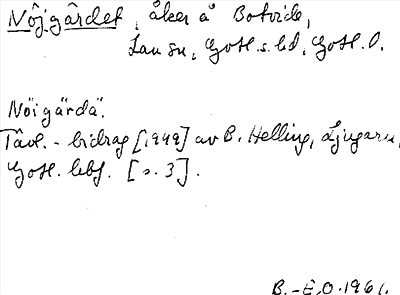 Nöjgärdet, åker å Botvide,
Lau sn, Gotl. s. hd, Gotl. l.
Nöigärdä.
Tävl.-bidrag [1949] av B. Helling, Ljugarn,
Gotl. [s. 3].
B.-E.O. 1961.